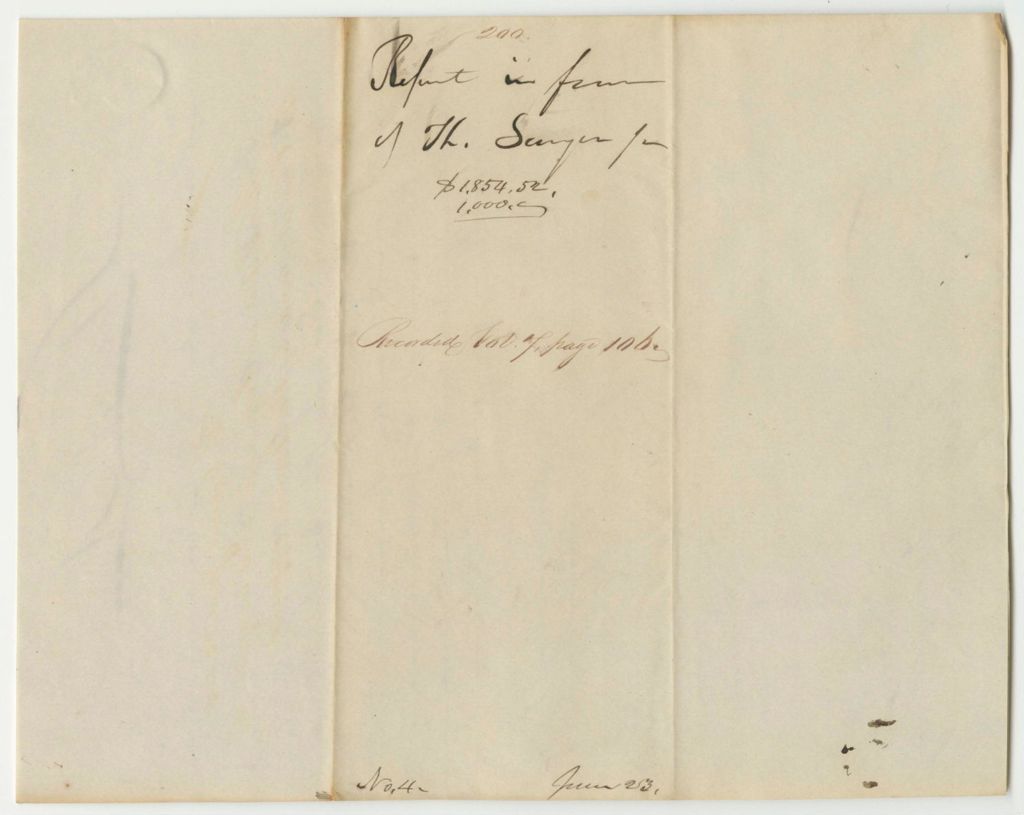 200.
Report in favor
of Th. Sawyer Jr
$1,854.52.
1,000.
Recorded Vol. 7. page 106
No. 4.
June 23.